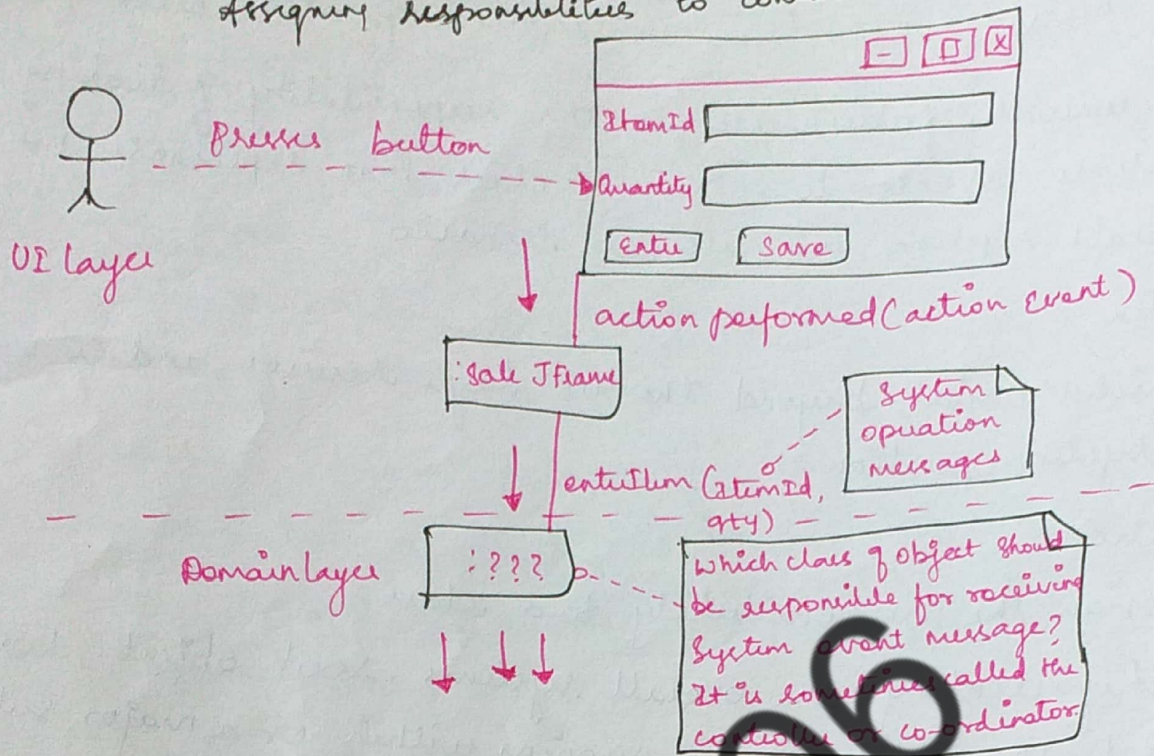 Assigning responsibilities to
- □ X
ItemId
Presses button
Quantity
Enter Save
UI layer
action performed (action Event)
:Sale Jframe
System
operation
messages
enterItem (ItemId,
qty)
Domain layer
:???
Which class of object should
be responsible for receiving
System event message?
It is sometimes called the
controller or co-ordinator.
06